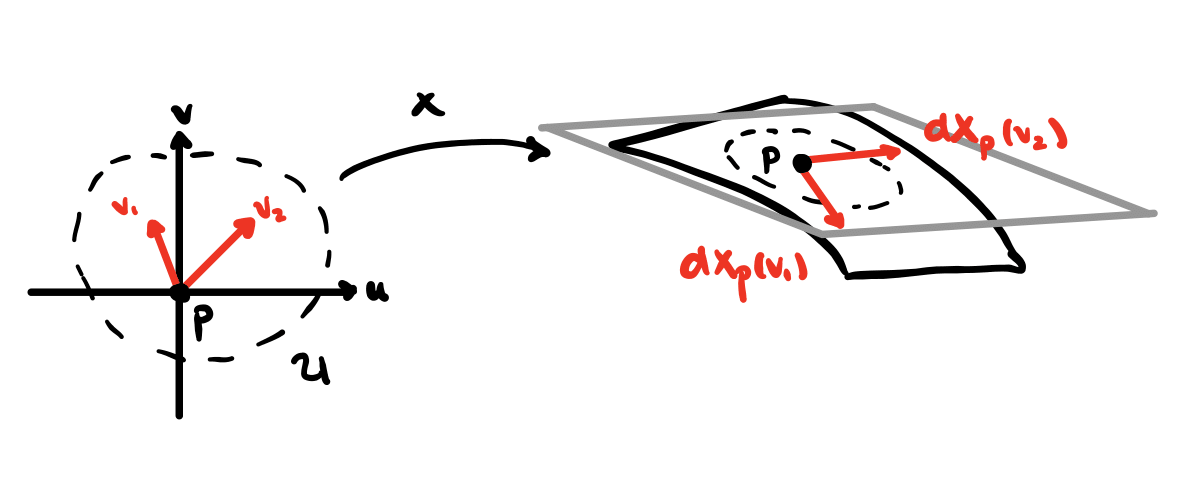 v
x
v₁
v₂
u
p
U
p
dx_p(v₂)
dx_p(v₁)